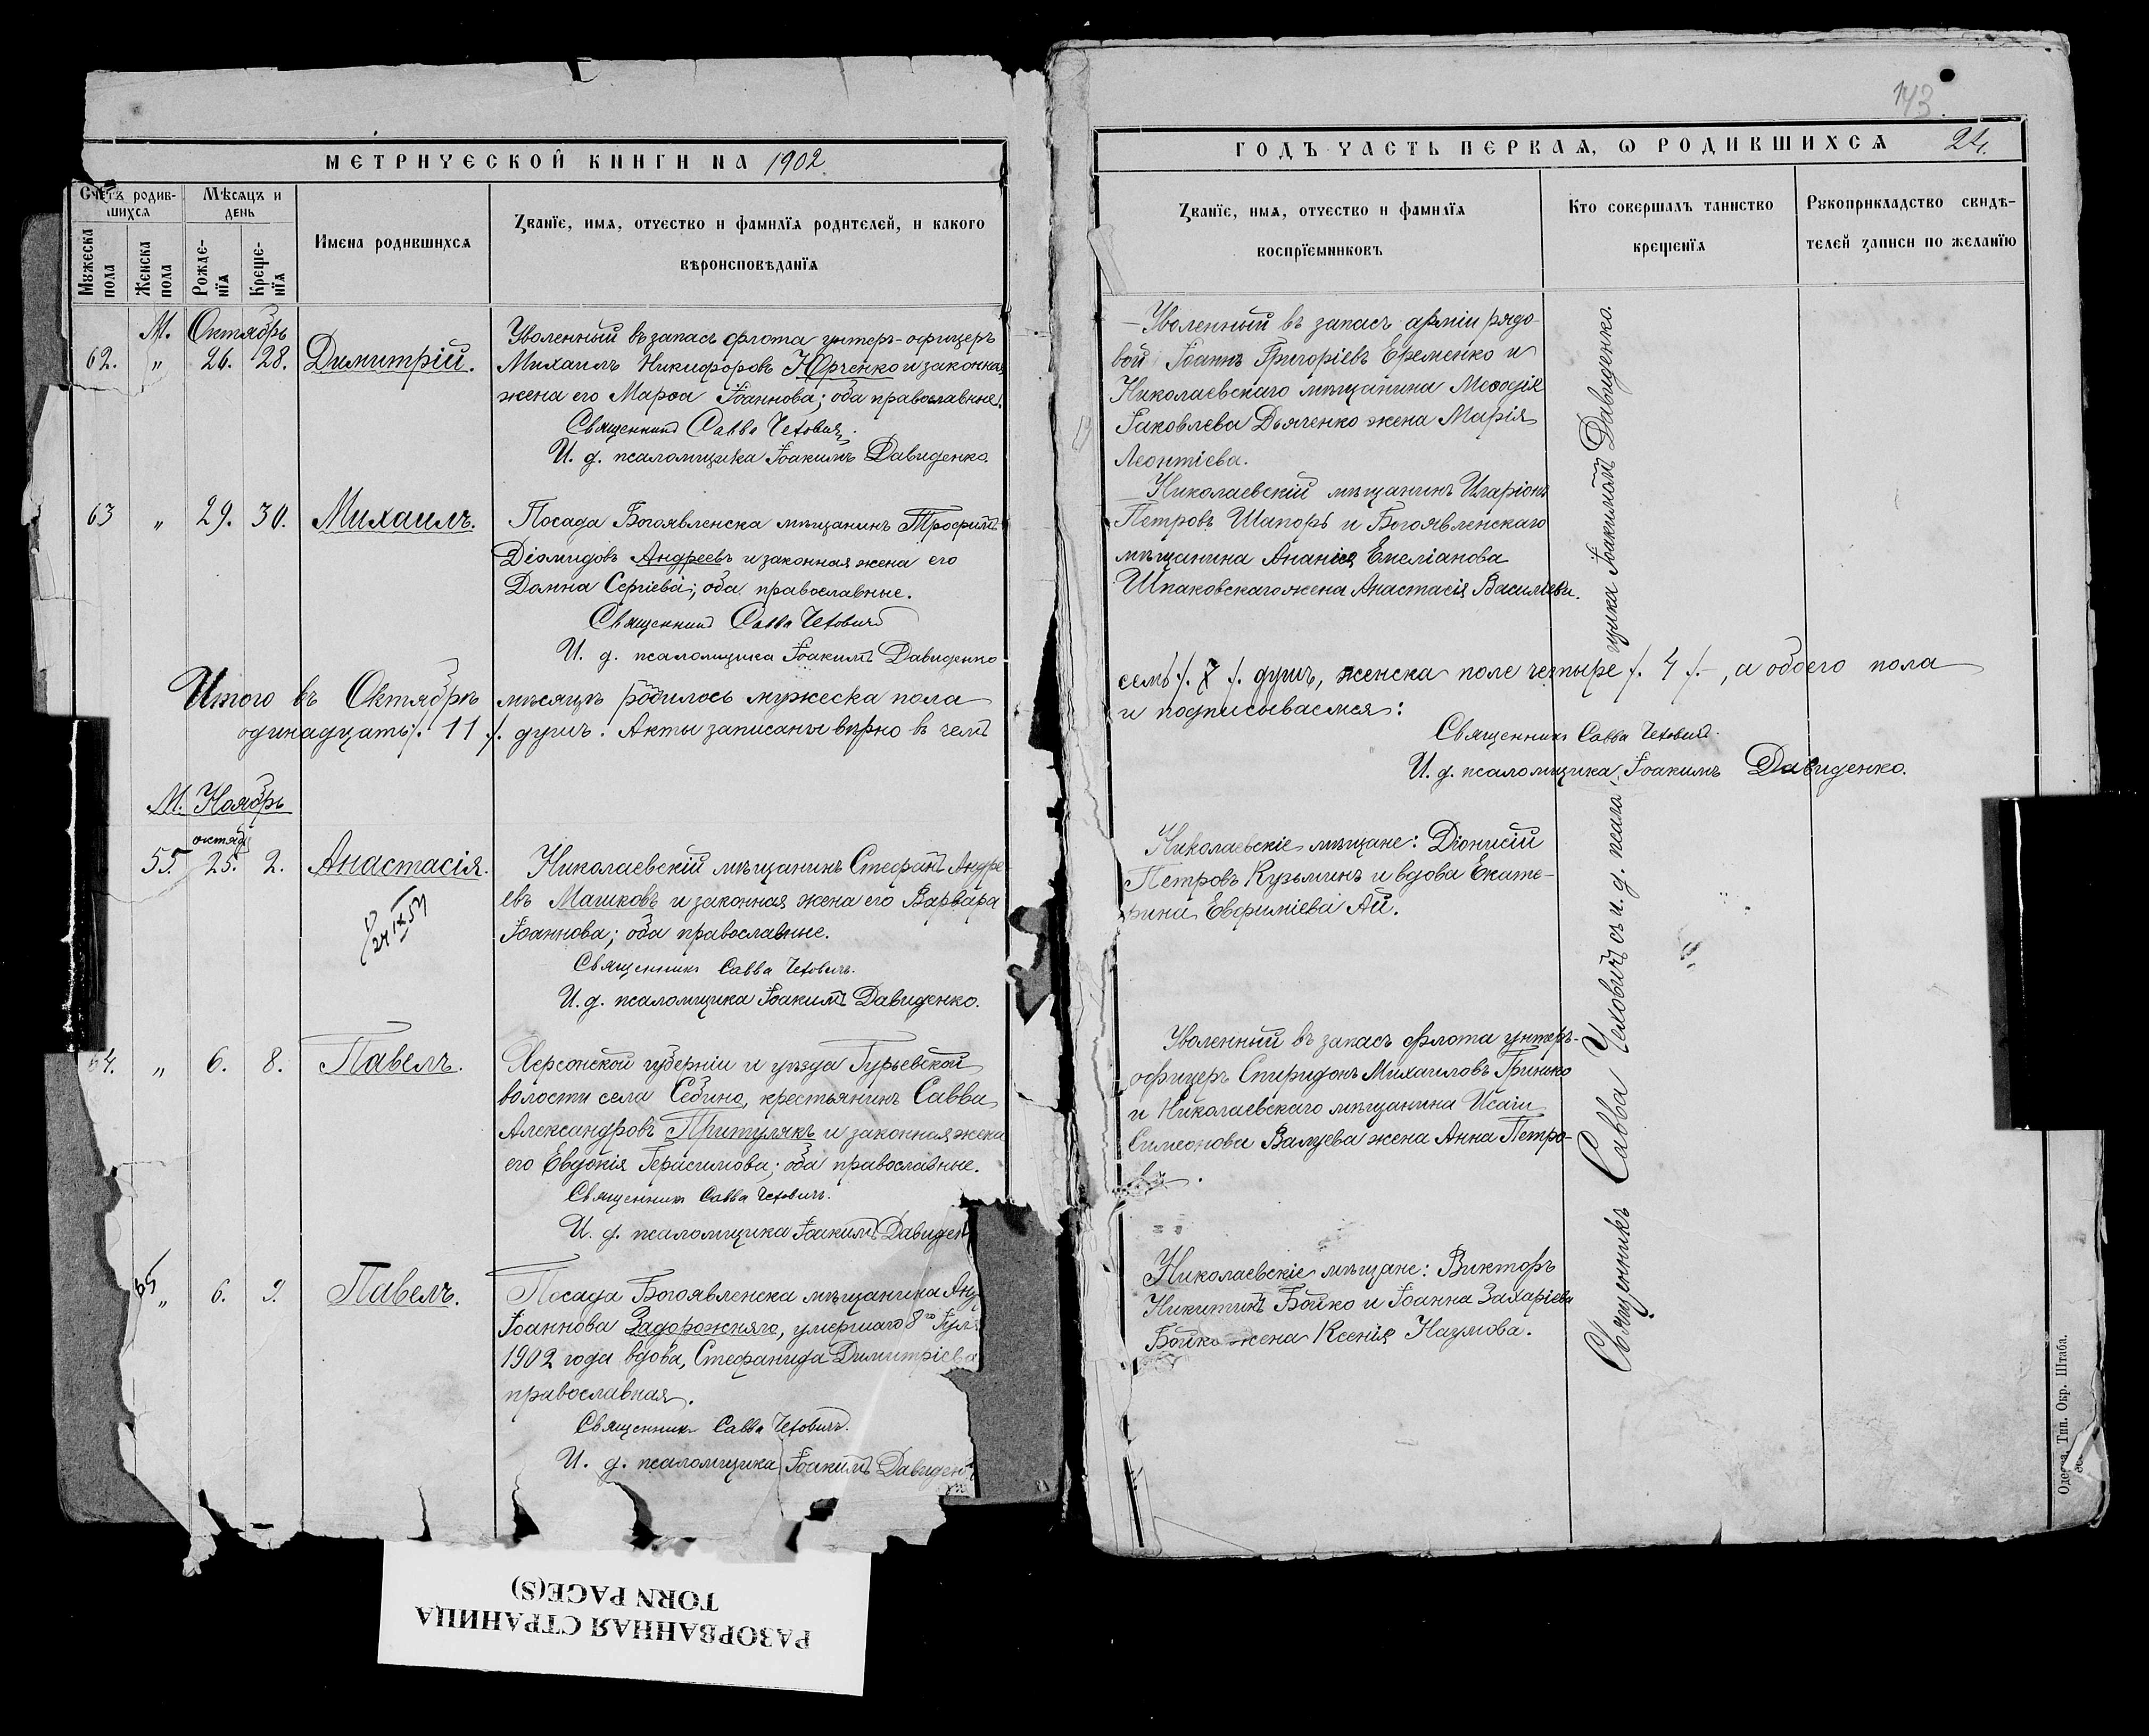 МЕТРИЧЕСКОЙ КНИГИ НА 1902
Счетъ родив-
шихся
Мѣсяцъ и
день
Мужеска
пола
Женска
пола
Рожде-
нїя
Креще-
нїя
Имена родившихся
Званїе, имя, отчество и фамилїя родителей, и какого
вѣроисповѣданїя
М. Октябрь
62. " 26. 28. Димитрій.
Уволенный въ запасъ флота унтеръ-офицеръ
Михаилъ Никифоровъ Юрченко и законная
жена его Марѳа Іоаннова; оба православные.
Священникъ Савва Чеховичъ.
И. д. псаломщика Іоакимъ Давиденко.
63 " 29. 30. Михаилъ.
Посада Богоявленска мѣщанинъ Трофимъ
Діомидовъ Андреевъ и законная жена его
Домна Сергіева; оба православные.
Священникъ Савва Чеховичъ
И. д. псаломщика Іоакимъ Давиденко
Итого въ Октябрѣ мѣсяцѣ родилось мужеска пола
одинадцать /. 11 /. душъ. Акты записаны вѣрно въ чемъ
М. Ноябрь
октяб
55. 25. 2. Анастасія.
24 IX 54
Николаевскій мѣщанинъ Стефанъ Андре-
евъ Машковъ и законная жена его Варвара
Іоаннова; оба православные.
Священникъ Савва Чеховичъ.
И. д. псаломщика Іоакимъ Давиденко.
64. " 6. 8. Павелъ.
Херсонской губерніи и уѣзда Гурьевской
волости села Себино, крестьянинъ Савва
Александровъ Притулякъ и законная жена
его Евдокія Герасимова; оба православные.
Священникъ Савва Чеховичъ.
И. д. псаломщика Іоакимъ Давиден
65 " 6. 9. Павелъ.
Посада Богоявленска мѣщанина Анд
Іоаннова Задорожняго, умершаго 8го Іул
1902 года вдова, Стефанида Димитріева
православная.
Священникъ Савва Чеховичъ.
И. д. псаломщика Іоакимъ Давиден
РАЗОРВАННАЯ СТРАНИЦА
TORN PAGE(S)
143
ГОДЪ ЧАСТЬ ПЕРВАЯ, Ѡ РОДИВШИХСЯ 24.
Званїе, имя, отчество и фамилїя
воспрїемниковъ
Кто совершалъ таинство
крещенїя
Рукоприкладство свидѣ-
телей записи по желанїю
Уволенный въ запасъ арміи рядо-
вой Іоаннъ Григоріевъ Еременко и
Николаевскаго мѣщанина Меѳодія
Іаковлева Дьяченко жена Марія
Леонтіева.
Николаевскій мѣщанинъ Иларіонъ
Петровъ Шапоръ и Богоявленскаго
мѣщанина Ананія Емеліанова
Шпаковскаго жена Анастасія Василіева.
семь /. 7 /. душъ, женска поле четыре /. 4 /. , а обоего пола
и подписываемся:
Священникъ Савва Чеховичъ.
И. д. псаломщика Іоакимъ Давиденко.
Николаевскіе мѣщане: Діонисій
Петровъ Кузьминъ и вдова Екате-
рина Евфиміева Ай.
Уволенный въ запасъ флота унтеръ-
офицеръ Спиридонъ Михаиловъ Гринько
и Николаевскаго мѣщанина Исаіи
Симеонова Валуева жена Анна Петро-
ва.
Николаевскіе мѣщане: Викторъ
Никитинъ Бойко и Іоанна Захаріева
Бойко жена Ксенія Наумова.
Священникъ Савва Чеховичъ съ и. д. псалом-
щика Іоакимомъ Давиденко.
Одесса, Тип. Окр. Штаба.